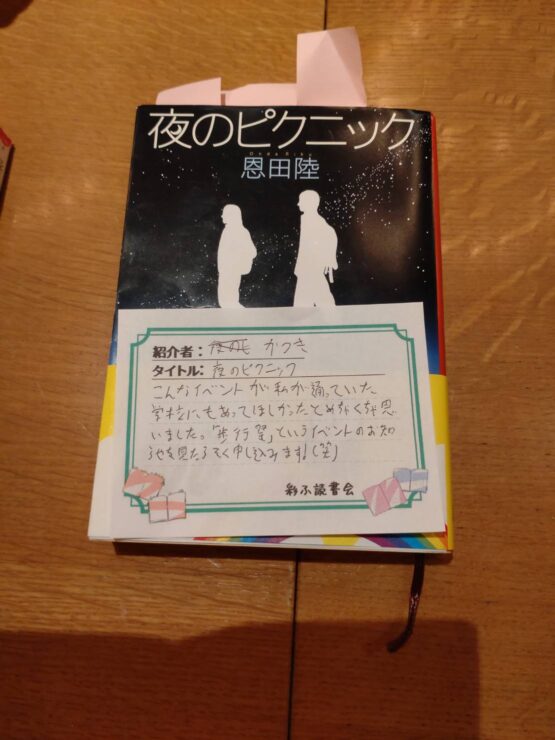 夜のピクニック
Onda Riku
恩田陸
紹介者: かつき
タイトル: 夜のピクニック
こんなイベントが私が通っていた
学校にもあってほしかったとめちゃくちゃ思
いました。「歩行祭」というイベントのお知
らせを見たらすぐ申し込みます!(笑)
彩ふ読書会